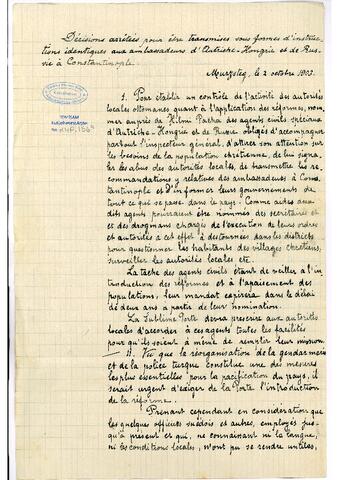 Décisions arrêtées pour être transmises sous formes d'instruc-
tions identiques aux ambassadeurs d'Autriche-Hongrie et de Rus-
sie à Constantinople.
Murzsteg, le 2 octobre 1903.
I. Pour établir un contrôle de l'activité des autorités
locales ottomanes quant à l'application des réformes, nom-
mer auprès de Hilmi Pacha des agents civils spéciaux
d'Autriche-Hongrie et de Russie obligés d'accompagner
partout l'inspecteur général, d'attirer son attention sur
les besoins de la population chrétienne, de lui signa-
ler les abus des autorités locales, de transmettre les re-
commandations y relatives des ambassadeurs à Cons-
tantinople et d'informer leurs gouvernements de
tout ce qui se passe dans le pays. Comme aides aux
dits agents pourraient être nommés des secrétaires et
et des drogmans chargés de l'exécution de leurs ordres
et autorisés à cet effet à des tournées dans les districts
pour questionner les habitants des villages chrétiens,
surveiller les autorités locales etc.
La tâche des agents civils étant de veiller à l'in-
troduction des réformes et à l'apaisement des
populations, leur mandat expirera dans le délai
de deux ans à partir de leur nomination.
La Sublime Porte devra prescrire aux autorités
locales d'accorder à ces agents toutes les facilités
pour qu'ils soient à même de remplir leur mission.
II. Vu que la réorganisation de la gendarmerie
et de la police turque constitue une des mesures
les plus essentielles pour la pacification du pays, il
serait urgent d'exiger de la Porte l'introduction
de la réforme.
Prenant cependant en considération que
les quelques officiers suédois et autres, employés jus-
qu'à présent et qui, ne connaissant ni la langue,
ni les conditions locales, n'ont pu se rendre utiles,